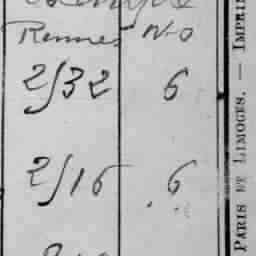 Rennes N-O
2/32 6
2/16 6
PARIS ET LIMOGES. — IMPRIM